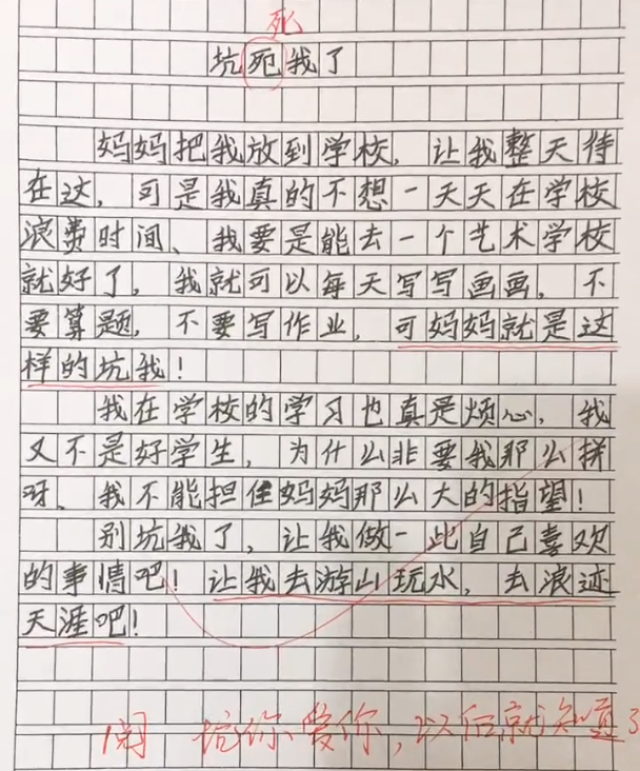 死
坑死我了
妈妈把我放到学校，让我整天待
在这，可是我真的不想一天天在学校
浪费时间、我要是能去一个艺术学校
就好了，我就可以每天写写画画，不
要算题，不要写作业，可妈妈就是这
样的坑我！
我在学校的学习也真是烦心，我
又不是好学生，为什么非要我那么拼
呀、我不能担住妈妈那么大的指望！
别坑我了，让我做一此自己喜欢
的事情吧！让我去游山玩水，去浪迹
天涯吧！
阅 坑你爱你，以后就知道了